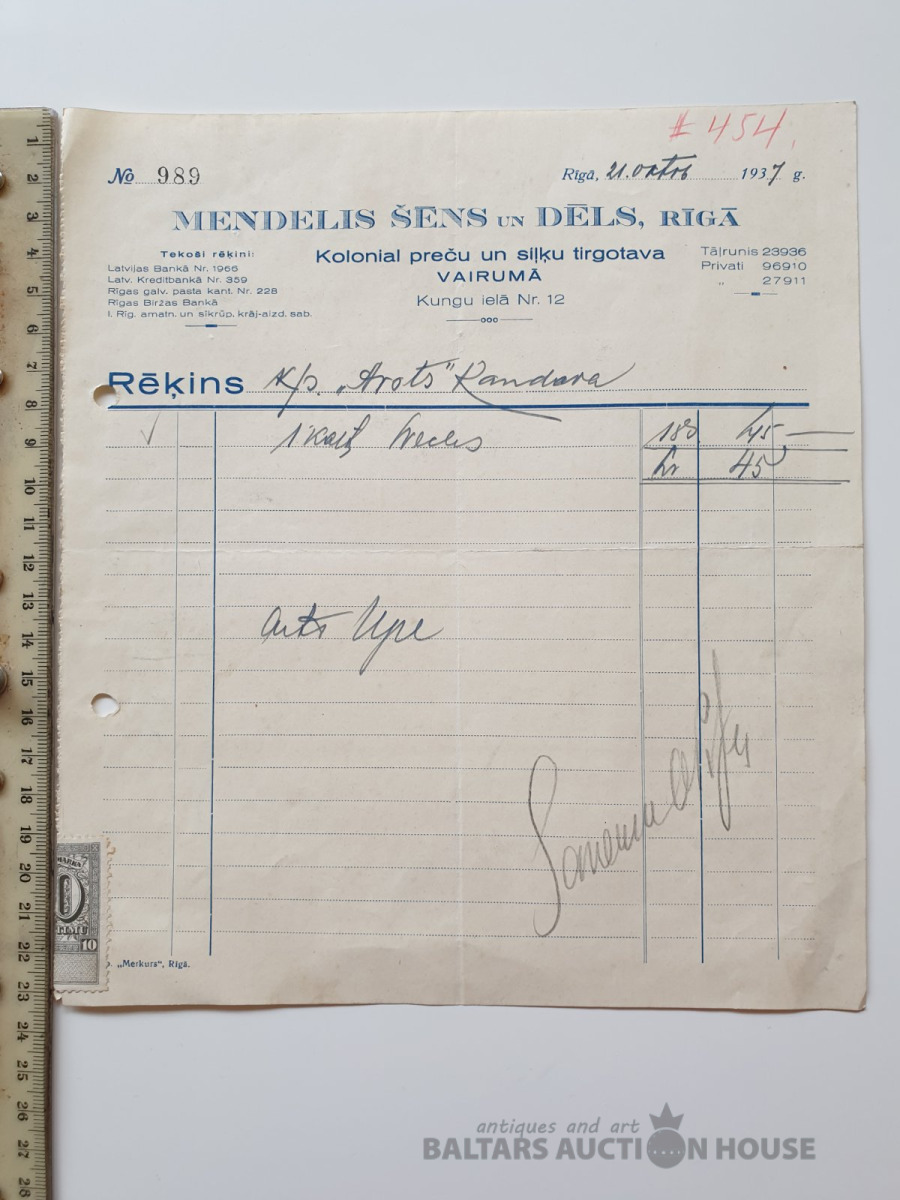 # 454.
No 989
Rīgā, 21. oktob 1937 g.
MENDELIS ŠĒNS UN DĒLS, RĪGĀ
Tekoši rēķini:
Latvijas Bankā Nr. 1966
Latv. Kreditbankā Nr. 359
Rīgas galv. pasta kant. Nr. 228
Rīgas Biržas Bankā
I. Rīg. amatn. un sīkrūp. krāj-aizd. sab.
Kolonial preču un siļķu tirgotava
VAIRUMĀ
Kungu ielā Nr. 12
Tāļrunis 23936
Privati 96910
„ 27911
Rēķins k/p. „Arots" Kandava
1 180 45 —
Ls 45
Upe
MARKA
10
„Merkurs", Rīgā.
1 2 3 4 5 6 7 8 9 10 11 12 13 14 15 16 17 18 19 20 21 22 23 24 25 26 27 28
antiques and art
BALTARS AUCTION HOUSE